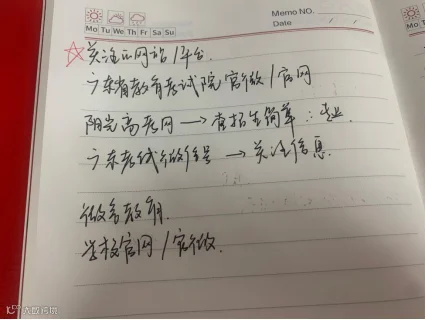 Memo NO.
Mo Tu We Th Fr Sa Su
Date
Mo Tu
☆关注的网站/平台.
广东省教育考试院官微/官网
阳光高考网→查招生简章:专业.
广东考试微信号→关注信息.
微言教育.
学校官网/官微.
大数跨境